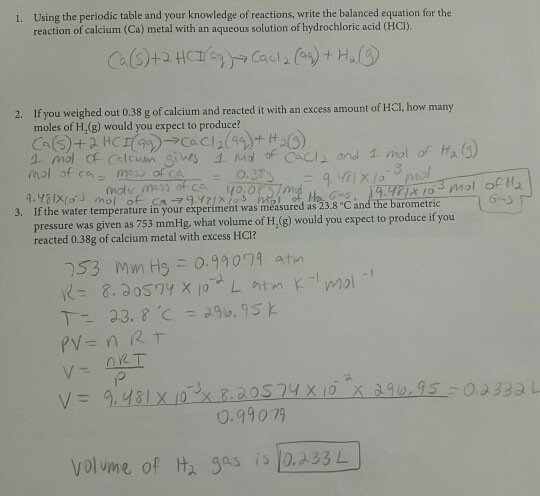 1. Using the periodic table and your knowledge of reactions, write the balanced equation for the
reaction of calcium (Ca) metal with an aqueous solution of hydrochloric acid (HCl).
Ca(s)+2 HCl(aq)→CaCl2(aq)+H2(g)
2. If you weighed out 0.38 g of calcium and reacted it with an excess amount of HCl, how many
moles of H2(g) would you expect to produce?
Ca(s)+2 HCl(aq)→CaCl2(aq)+H2(g)
1 mol of Calcium gives 1 mol of CaCl2 and 1 mol of H2(g)
mol of ca = mass of ca / molar mass of ca = 0.38g / 40.08g/mol = 9.481x10-3 mol
9.481x10-3 mol of ca → 9.481x10-3 mol of H2 Gas. 9.481x10-3 mol of H2 Gas
3. If the water temperature in your experiment was measured as 23.8 °C and the barometric
pressure was given as 753 mmHg, what volume of H2(g) would you expect to produce if you
reacted 0.38g of calcium metal with excess HCl?
753 mm Hg = 0.99079 atm
R = 8.20574 x 10-2 L atm K-1 mol-1
T = 23.8 °C = 296.95 K
PV = n R T
V = nRT / P
V = 9.481 x 10-3 x 8.20574 x 10-2 x 296.95 / 0.99079 = 0.2332 L
Volume of H2 gas is 0.233 L